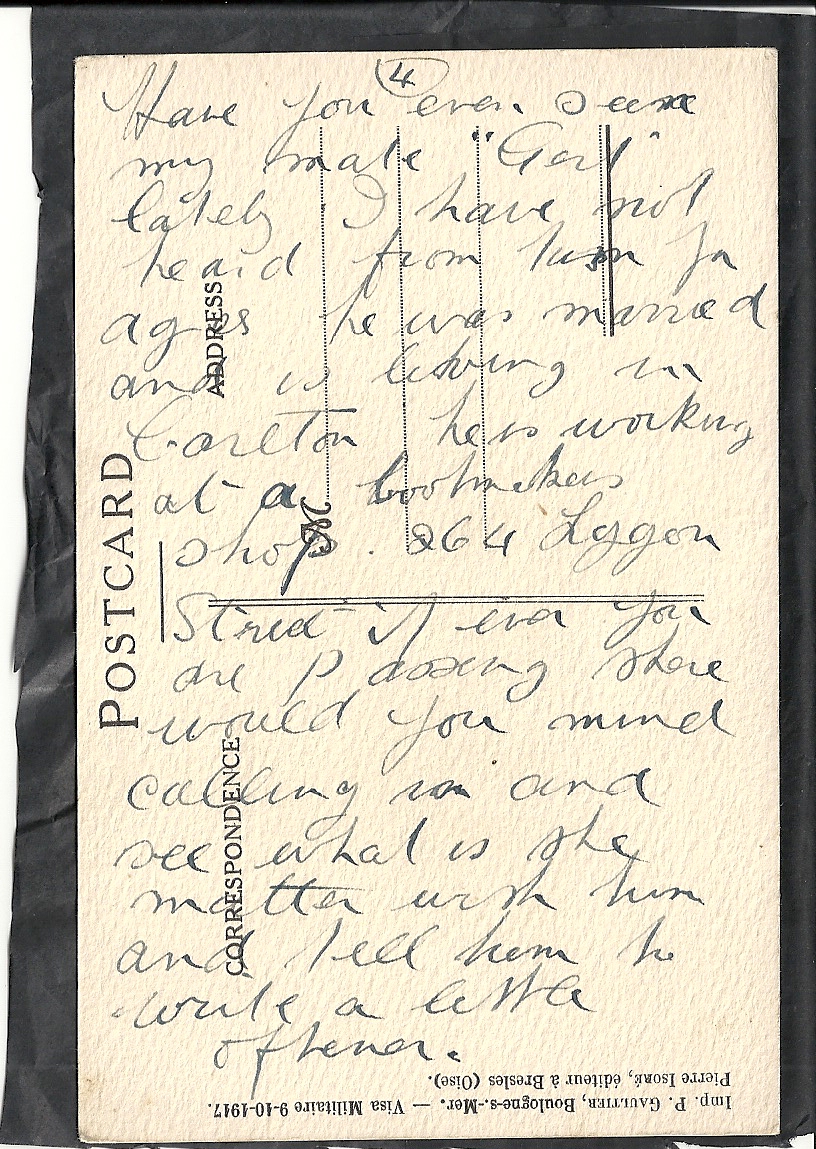 4
Have you ever seen
my mate "Gail"
lately. I have not
heard from him for
ages he was married
and is living in
Carlton he is working
at a bootmakers
shop. 264 Lygon
Street if ever you
are passing there
would you mind
calling in and
see what is the
matter with him
and tell him to
write a little
oftener.
POSTCARD
ADDRESS
CORRESPONDENCE
M
Imp. P. GAULTIER, Boulogne-s.-Mer. — Visa Militaire 9-10-1917.
Pierre ISORÉ, éditeur à Bresles (Oise).